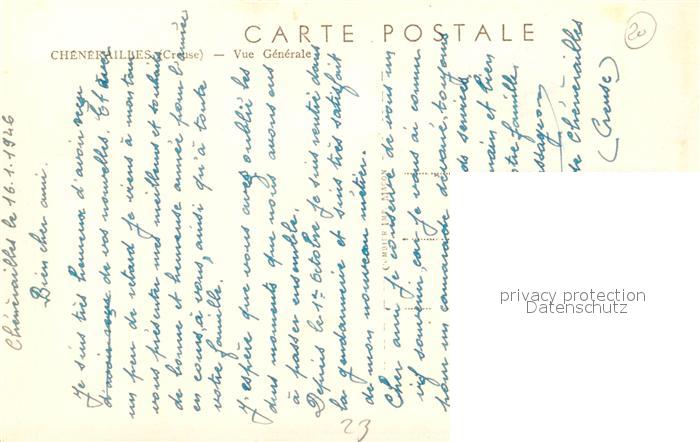 CARTE POSTALE
CHÉNÉRAILLES (Creuse) — Vue Générale
20
Chénérailles le 16.1.1946
Bien cher ami.
Je suis très heureux d'avoir reçu
d'avoir reçu de vos nouvelles. Et avec
un peu de retard je viens à mon tour
vous présenter mes meilleurs et souhaits
de bonne et heureuse année pour l'année
en cours, à vous, ainsi qu'à toute
votre famille.
J'espère que vous avez oublié les
durs moments que nous avons eus
à passer ensemble.
Depuis le 1er octobre je suis rentré dans
la gendarmerie et suis très satisfait
de mon nouveau métier.
Cher ami je conserve de vous un
vif souvenir, car je vous ai connu
pour un camarade dévoué, toujours
services
main et bien
votre famille
Chénérailles
(Creuse)
COMBIER IMP. MACON
23
privacy protection
Datenschutz